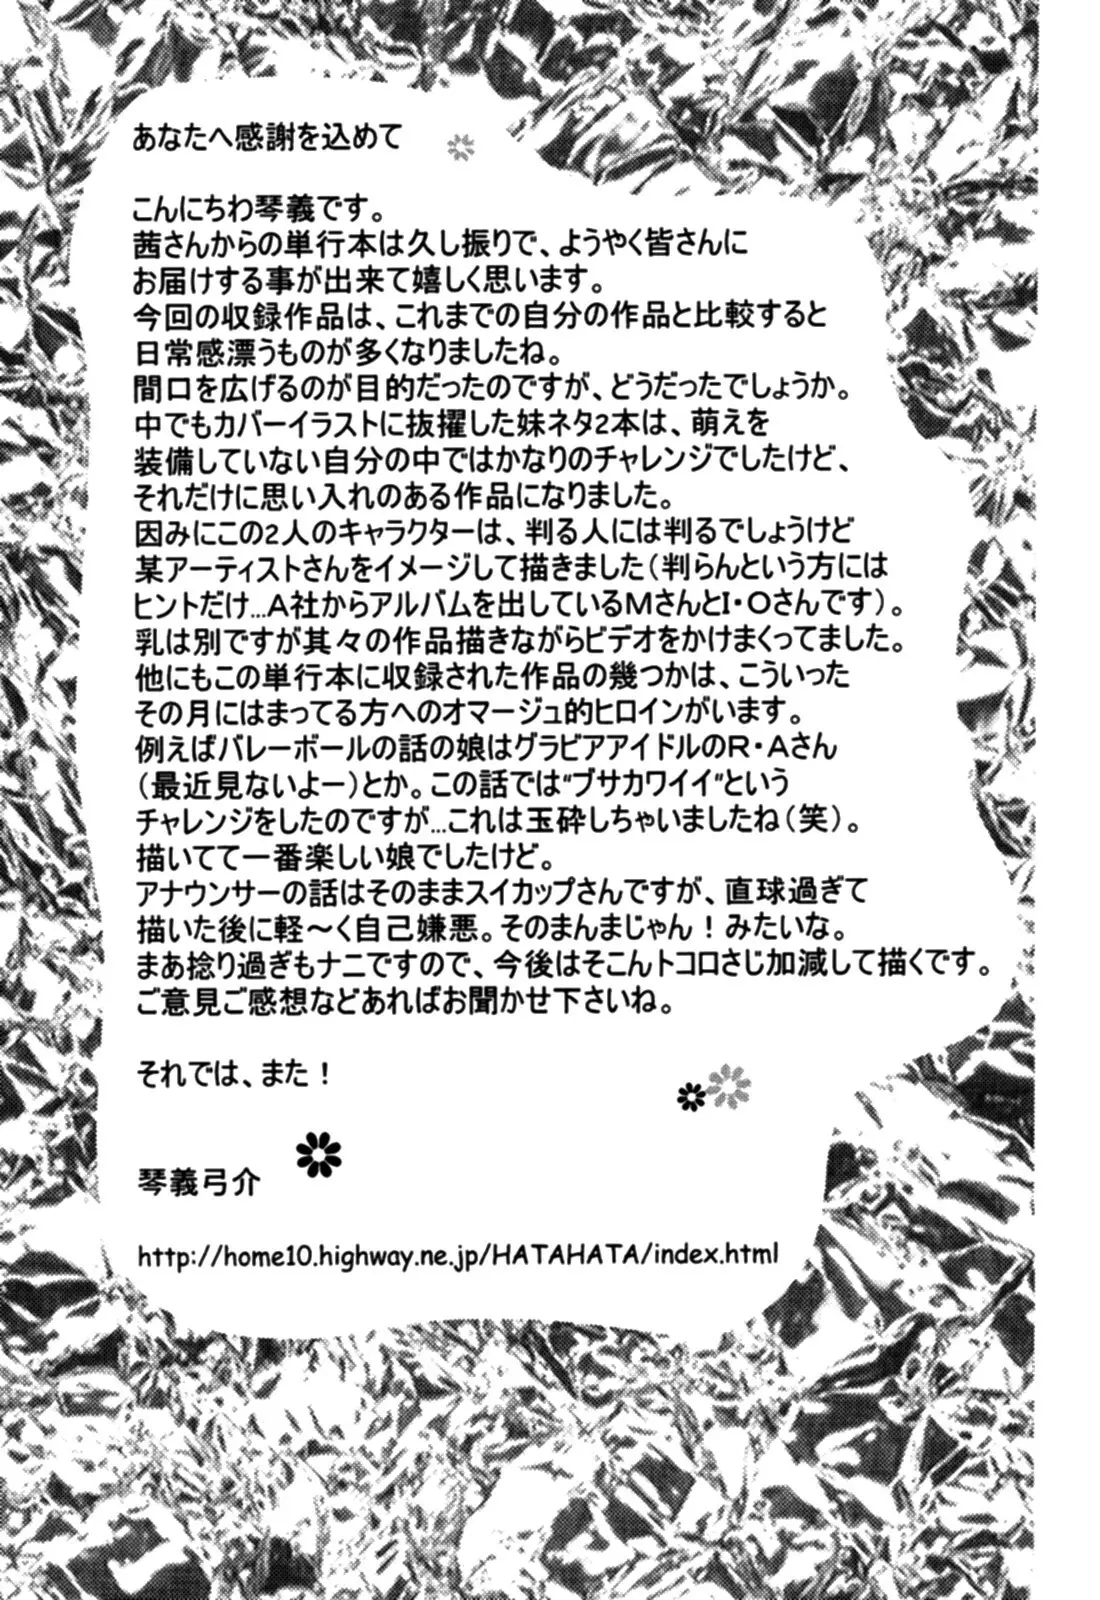 あなたへ感謝を込めて
こんにちわ琴義です。
茜さんからの単行本は久し振りで、ようやく皆さんに
お届けする事が出来て嬉しく思います。
今回の収録作品は、これまでの自分の作品と比較すると
日常感漂うものが多くなりましたね。
間口を広げるのが目的だったのですが、どうだったでしょうか。
中でもカバーイラストに抜擢した妹ネタ2本は、萌えを
装備していない自分の中ではかなりのチャレンジでしたけど、
それだけに思い入れのある作品になりました。
因みにこの2人のキャラクターは、判る人には判るでしょうけど
某アーティストさんをイメージして描きました（判らんという方には
ヒントだけ…A社からアルバムを出しているMさんとI・Oさんです）。
乳は別ですが其々の作品描きながらビデオをかけまくってました。
他にもこの単行本に収録された作品の幾つかは、こういった
その月にはまってる方へのオマージュ的ヒロインがいます。
例えばバレーボールの話の娘はグラビアアイドルのR・Aさん
（最近見ないよー）とか。この話では"ブサカワイイ"という
チャレンジをしたのですが…これは玉砕しちゃいましたね（笑）。
描いてて一番楽しい娘でしたけど。
アナウンサーの話はそのままスイカップさんですが、直球過ぎて
描いた後に軽～く自己嫌悪。そのまんまじゃん！みたいな。
まあ捻り過ぎもナニですので、今後はそこんトコロさじ加減して描くです。
ご意見ご感想などあればお聞かせ下さいね。
それでは、また！
琴義弓介
http://home10.highway.ne.jp/HATAHATA/index.html